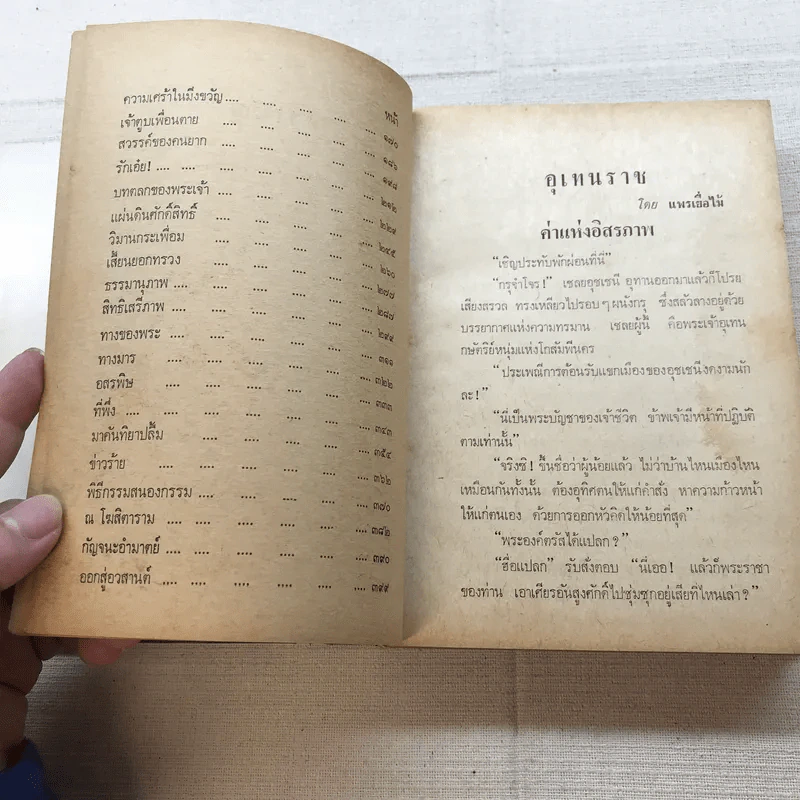 หน้า
ความเศร้าในมิ่งขวัญ .... .... .... .... ๑๗๐
เจ้าตูบเพื่อนตาย .... .... .... .... ๑๘๖
สวรรค์ของคนยาก .... .... .... .... ๑๙๘
รักเอ๋ย! .... .... .... .... .... ๒๑๒
บทตลกของพระเจ้า .... .... .... .... ๒๒๙
แผ่นดินศักดิ์สิทธิ์ .... .... .... .... ๒๔๕
วิมานกระเพื่อม .... .... .... .... ๒๖๐
เสี้ยนยอกทรวง .... .... .... .... ๒๗๗
ธรรมานุภาพ .... .... .... .... ๒๘๗
สิทธิเสรีภาพ .... .... .... .... ๒๙๙
ทางของพระ .... .... .... .... ๓๑๑
ทางมาร .... .... .... .... .... ๓๒๒
อสรพิษ .... .... .... .... .... ๓๓๓
ที่พึ่ง .... .... .... .... .... ๓๔๓
มาคันทิยาปลื้ม .... .... .... .... ๓๕๔
ข่าวร้าย .... .... .... .... .... ๓๖๒
พิธีกรรมสนองกรรม .... .... .... .... ๓๗๐
ณ โฆสิตาราม .... .... .... .... .... ๓๘๒
กัญจนะอำมาตย์ .... .... .... .... .... ๓๙๐
ออกสู่อวสานต์ .... .... .... .... .... ๓๙๙
อุเทนราช
โดย แพรเยื่อไม้
ค่าแห่งอิสรภาพ
“เชิญประทับพักผ่อนที่นี่”
“กรุจำโจร!” เชลยอุชเชนี อุทานออกมาแล้วก็โปรย
เสียงสรวล ทรงเหลียวไปรอบๆผนังกรุ ซึ่งสลัวลางอยู่ด้วย
บรรยากาศแห่งความทรมาน เชลยผู้นี้ คือพระเจ้าอุเทน
กษัตริย์หนุ่มแห่งโกสัมพีนคร
“ประเพณีการต้อนรับแขกเมืองของอุชเชนีงดงามนัก
ละ!”
“นี่เป็นพระบัญชาของเจ้าชีวิต ข้าพเจ้ามีหน้าที่ปฏิบัติ
ตามเท่านั้น”
“จริงซิ! ขึ้นชื่อว่าผู้น้อยแล้ว ไม่ว่าบ้านไหนเมืองไหน
เหมือนกันทั้งนั้น ต้องอุทิศตนให้แก่คำสั่ง หาความก้าวหน้า
ให้แก่ตนเอง ด้วยการออกหัวคิดให้น้อยที่สุด”
“พระองค์ตรัสได้แปลก?”
“ฮื่อแปลก” รับสั่งตอบ “นี่เออ! แล้วก็พระราชา
ของท่าน เอาเศียรอันสูงศักดิ์ไปซุ่มซุกอยู่เสียที่ไหนเล่า?”